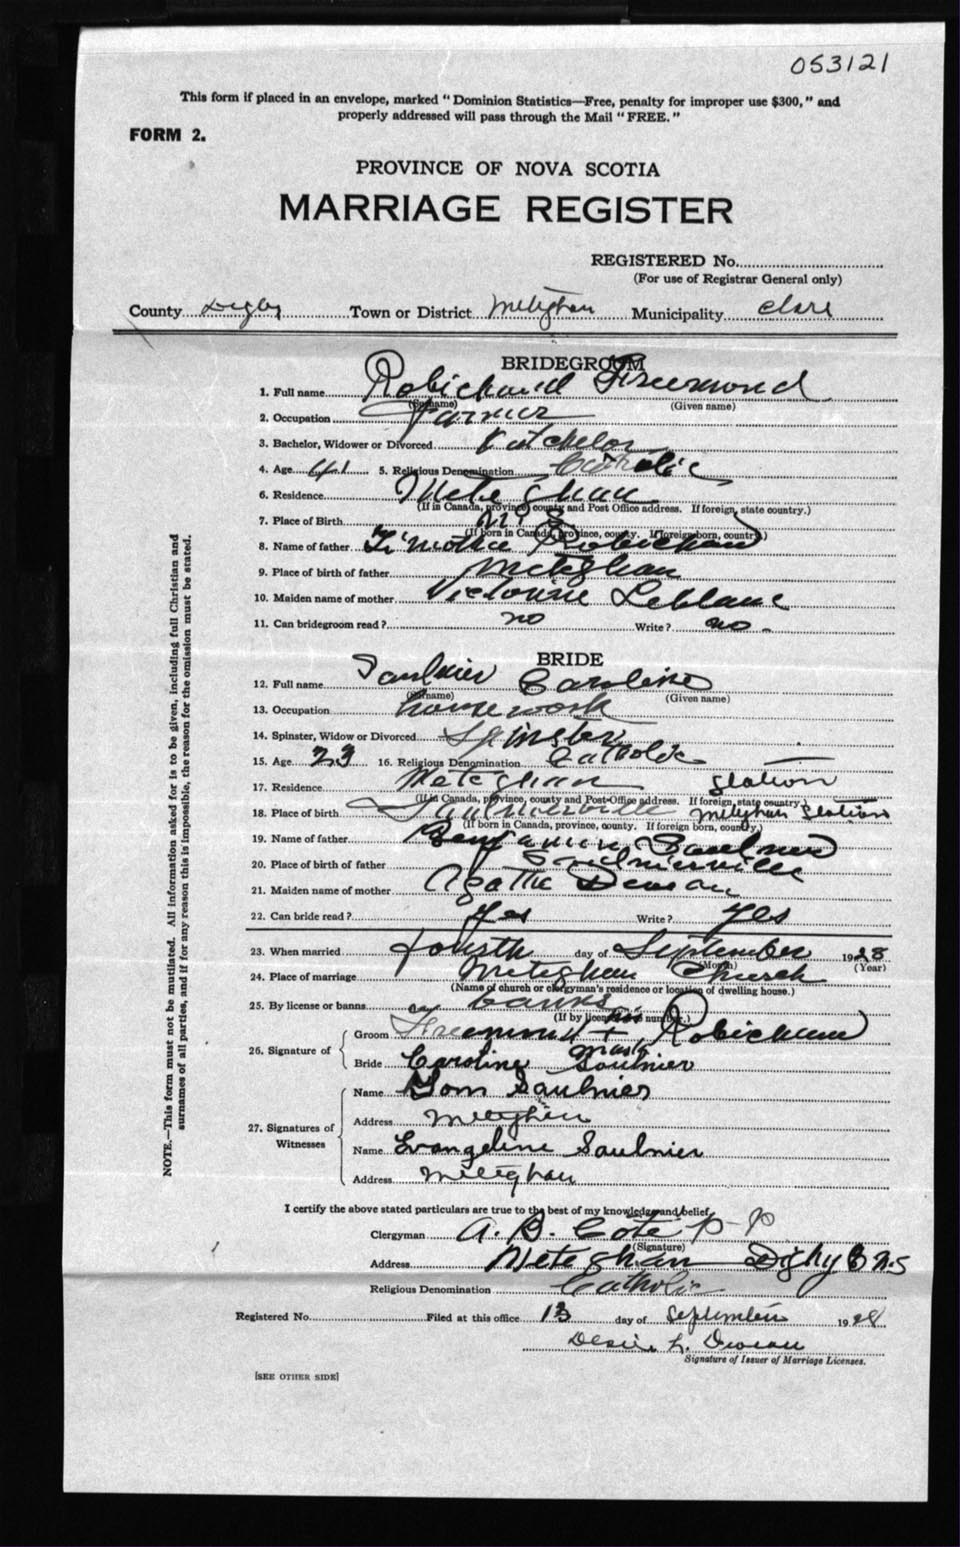 053121
This form if placed in an envelope, marked "Dominion Statistics—Free, penalty for improper use $300," and
properly addressed will pass through the Mail "FREE."
FORM 2.
PROVINCE OF NOVA SCOTIA
MARRIAGE REGISTER
REGISTERED No.
(For use of Registrar General only)
County Digby Town or District Meteghan Municipality Clare
BRIDEGROOM
1. Full name Robichaud Freemond
(Surname) (Given name)
2. Occupation farmer
3. Bachelor, Widower or Divorced Batchelor
4. Age 41 5. Religious Denomination Catholic
6. Residence Meteghan
(If in Canada, province, county and Post Office address. If foreign, state country.)
7. Place of Birth N S
(If born in Canada, province, county. If foreign born, country.)
8. Name of father Timothee Robichaud
9. Place of birth of father Meteghan
10. Maiden name of mother Victorine Leblanc
11. Can bridegroom read? no Write? no.
BRIDE
12. Full name Saulnier Caroline
(Surname) (Given name)
13. Occupation housework
14. Spinster, Widow or Divorced Spinster
15. Age 23 16. Religious Denomination Catholic
17. Residence Meteghan Station
(If in Canada, province, county and Post-Office address. If foreign, state country.)
18. Place of birth Saulnierville Meteghan Station
(If born in Canada, province, county. If foreign born, county.)
19. Name of father Benjamin Saulnier
20. Place of birth of father Saulnierville
21. Maiden name of mother Agathe Deveau
22. Can bride read? Yes Write? Yes
23. When married fourth day of September 1928
(Month) (Year)
24. Place of marriage Meteghan Church
(Name of church or clergyman's residence or location of dwelling house.)
25. By license or banns banns
(If by license its number.)
26. Signature of
Groom Freemond + Robichaud
his
mark
Bride Caroline Saulnier
27. Signatures of Witnesses
Name Tom Saulnier
Address Meteghan
Name Evangeline Saulnier
Address Meteghan
I certify the above stated particulars are true to the best of my knowledge and belief.
Clergyman A. B. Cote P-P
(Signature)
Address Meteghan Digby Co N.S
Religious Denomination Catholic
Registered No. Filed at this office 13 day of September 1928
L. Deveau
Signature of Issuer of Marriage Licenses.
[SEE OTHER SIDE]
NOTE.—This form must not be mutilated. All information asked for is to be given, including full Christian and
surnames of all parties, and if for any reason this is impossible, the reason for the omission must be stated.